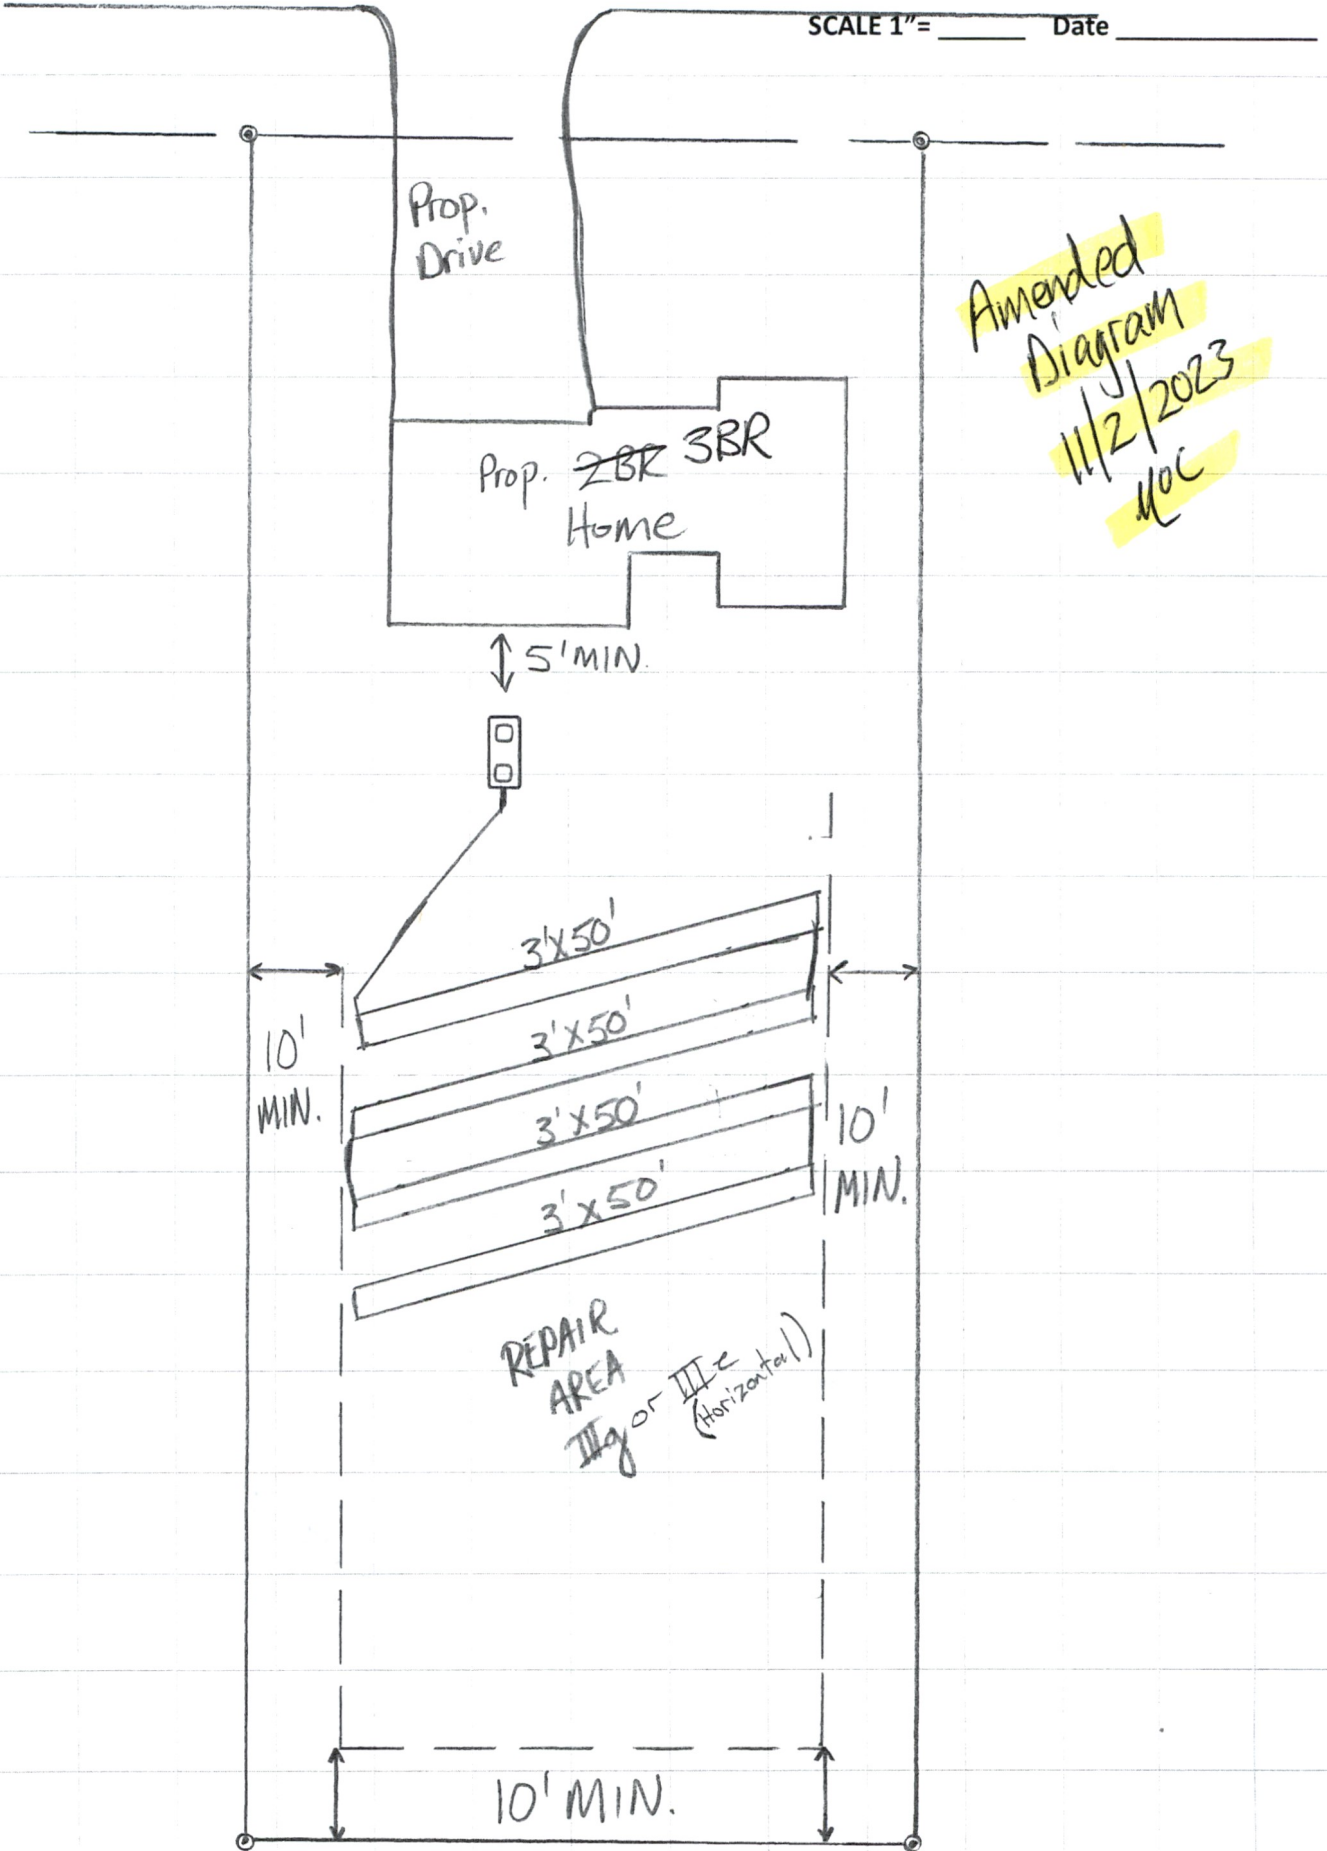 SCALE 1"= ______ Date ______________
Prop.
Drive
Amended
Diagram
11/2/2023
Prop. 2BR 3BR
Home
5' MIN.
3'X50'
3'X50'
3'X50'
3'X50'
10'
MIN.
10'
MIN.
REPAIR
AREA
IIIg or III e
(Horizontal)
10' MIN.